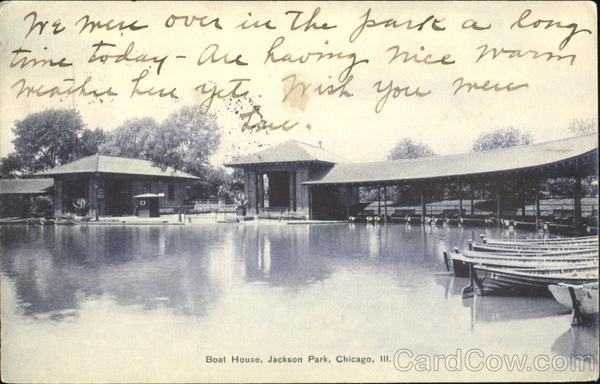 We were over in the park a long
time today - Are having nice warm
weather here yet. Wish you were
here
Boat House, Jackson Park, Chicago, Ill.
CardCow.com